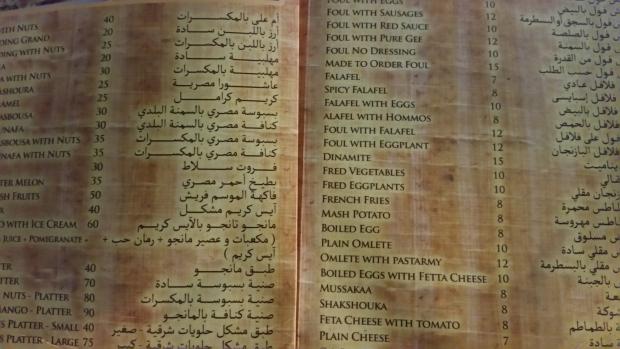 WITH NUTS 40 أم على بالمكسرات
DING GRAND 20 أرز باللبن سادة
DING WITH NUTS 30 أرز باللبن بالمكسرات
20 مهلبية سادة
WITH NUTS 30 مهلبية بالمكسرات
ASHOURA 25 عاشورا مصرية
AMEL 25 كريم كرامل
ASBOUSA 30 بسبوسة مصري بالسمنة البلدي
UNAFA 30 كنافة مصري بالسمنة البلدي
ASBOUSA WITH NUTS 35 بسبوسة مصري بالمكسرات
UNAFA WITH NUTS 35 كنافة مصري بالمكسرات
30 فروت سلاط
TER MELON 35 بطيخ أحمر مصري
SH FRUITS 50 فاكهة الموسم فريش
40 آيس كريم مشكل
O WITH ICE CREAM 60 مانجو تانجو بالآيس كريم
JUICE + POMIGRANATE + ( مكعبات و عصير مانجو + رمان حب +
آيس كريم )
TER 40 طبق مانجو
TTER 70 صنية بسبوسة سادة
NUTS - PLATTER 80 صنية بسبوسة بالمكسرات
ANGO - PLATTER 90 صنية كنافة بالمانجو
S PLATTER - SMALL 40 طبق مشكل حلويات شرقية - صغير
S PLATTER - LARGE 75 طبق مشكل حلويات شرقية - كبير
FOUL WITH EGGS 10 فول بالبيض
FOUL WITH SAUSAGES 12 فول بالسجق أو البسطرمة
FOUL WITH RED SAUCE 10 فول بالصلصة
FOUL WITH PURE GEF 12 فول بالسمنة
FOUL NO DRESSING 10 فول من القدرة
MADE TO ORDER FOUL 15 فول حسب الطلب
FALAFEL 7 فلافل عادي
SPICY FALAFEL 8 فلافل اسبايسى
FALAFEL WITH EGGS 10 فلافل بالبيض
ALAFEL WITH HOMMOS 8 فلافل بالحمص
FOUL WITH FALAFEL 12 فول على فلافل
FOUL WITH EGGPLANT 12 البازنجان
DINAMITE 15
FRED VEGETABLES 10
FRED EGGPLANTS 10 مقلي
FRENCH FRIES 8 محمرة
MASH POTATO 8 مهروسة
BOILED EGG 8 مسلوق
PLAIN OMLETE 8 مقلي سادة
OMLETE WITH PASTARMY 12 مقلي بالبسطرمة
BOILED EGGS WITH FETTA CHEESE 10 بالجبنة
MUSSAKAA 8
SHAKSHOUKA 8
FETA CHEESE WITH TOMATO 8 بالطماطم
PLAIN CHEESE 7 سادة